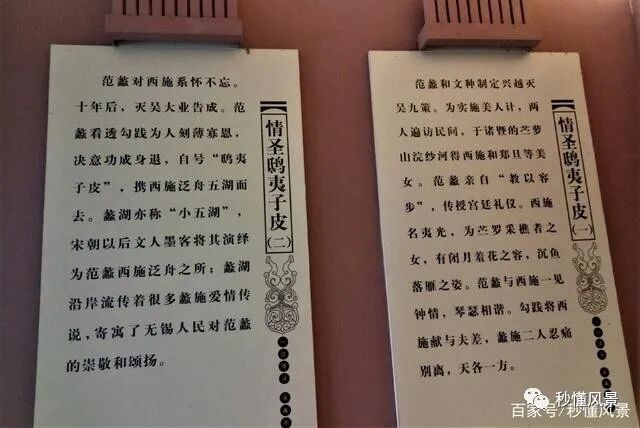 范蠡对西施系怀不忘。
十年后，灭吴大业告成。范
蠡看透勾践为人刻薄寡恩，
决意功成身退，自号“鸱夷
子皮”，携西施泛舟五湖而
去。蠡湖亦称“小五湖”，
宋朝以后文人墨客将其演绎
为范蠡西施泛舟之所；蠡湖
沿岸流传着很多蠡施爱情传
说，寄寓了无锡人民对范蠡
的崇敬和颂扬。
情圣鸱夷子皮(二)
范蠡和文种制定兴越灭
吴九策。为实施美人计，两
人遍访民间，于诸暨的苎萝
山浣纱河得西施和郑旦等美
女。范蠡亲自“教以容
步”，传授宫廷礼仪。西施
名夷光，为苎罗采樵者之
女，有闭月羞花之容，沉鱼
落雁之姿。范蠡与西施一见
钟情，琴瑟相谐。勾践将西
施献与夫差，蠡施二人忍痛
别离，天各一方。
情圣鸱夷子皮(一)
秒懂风景
百家号/秒懂风景